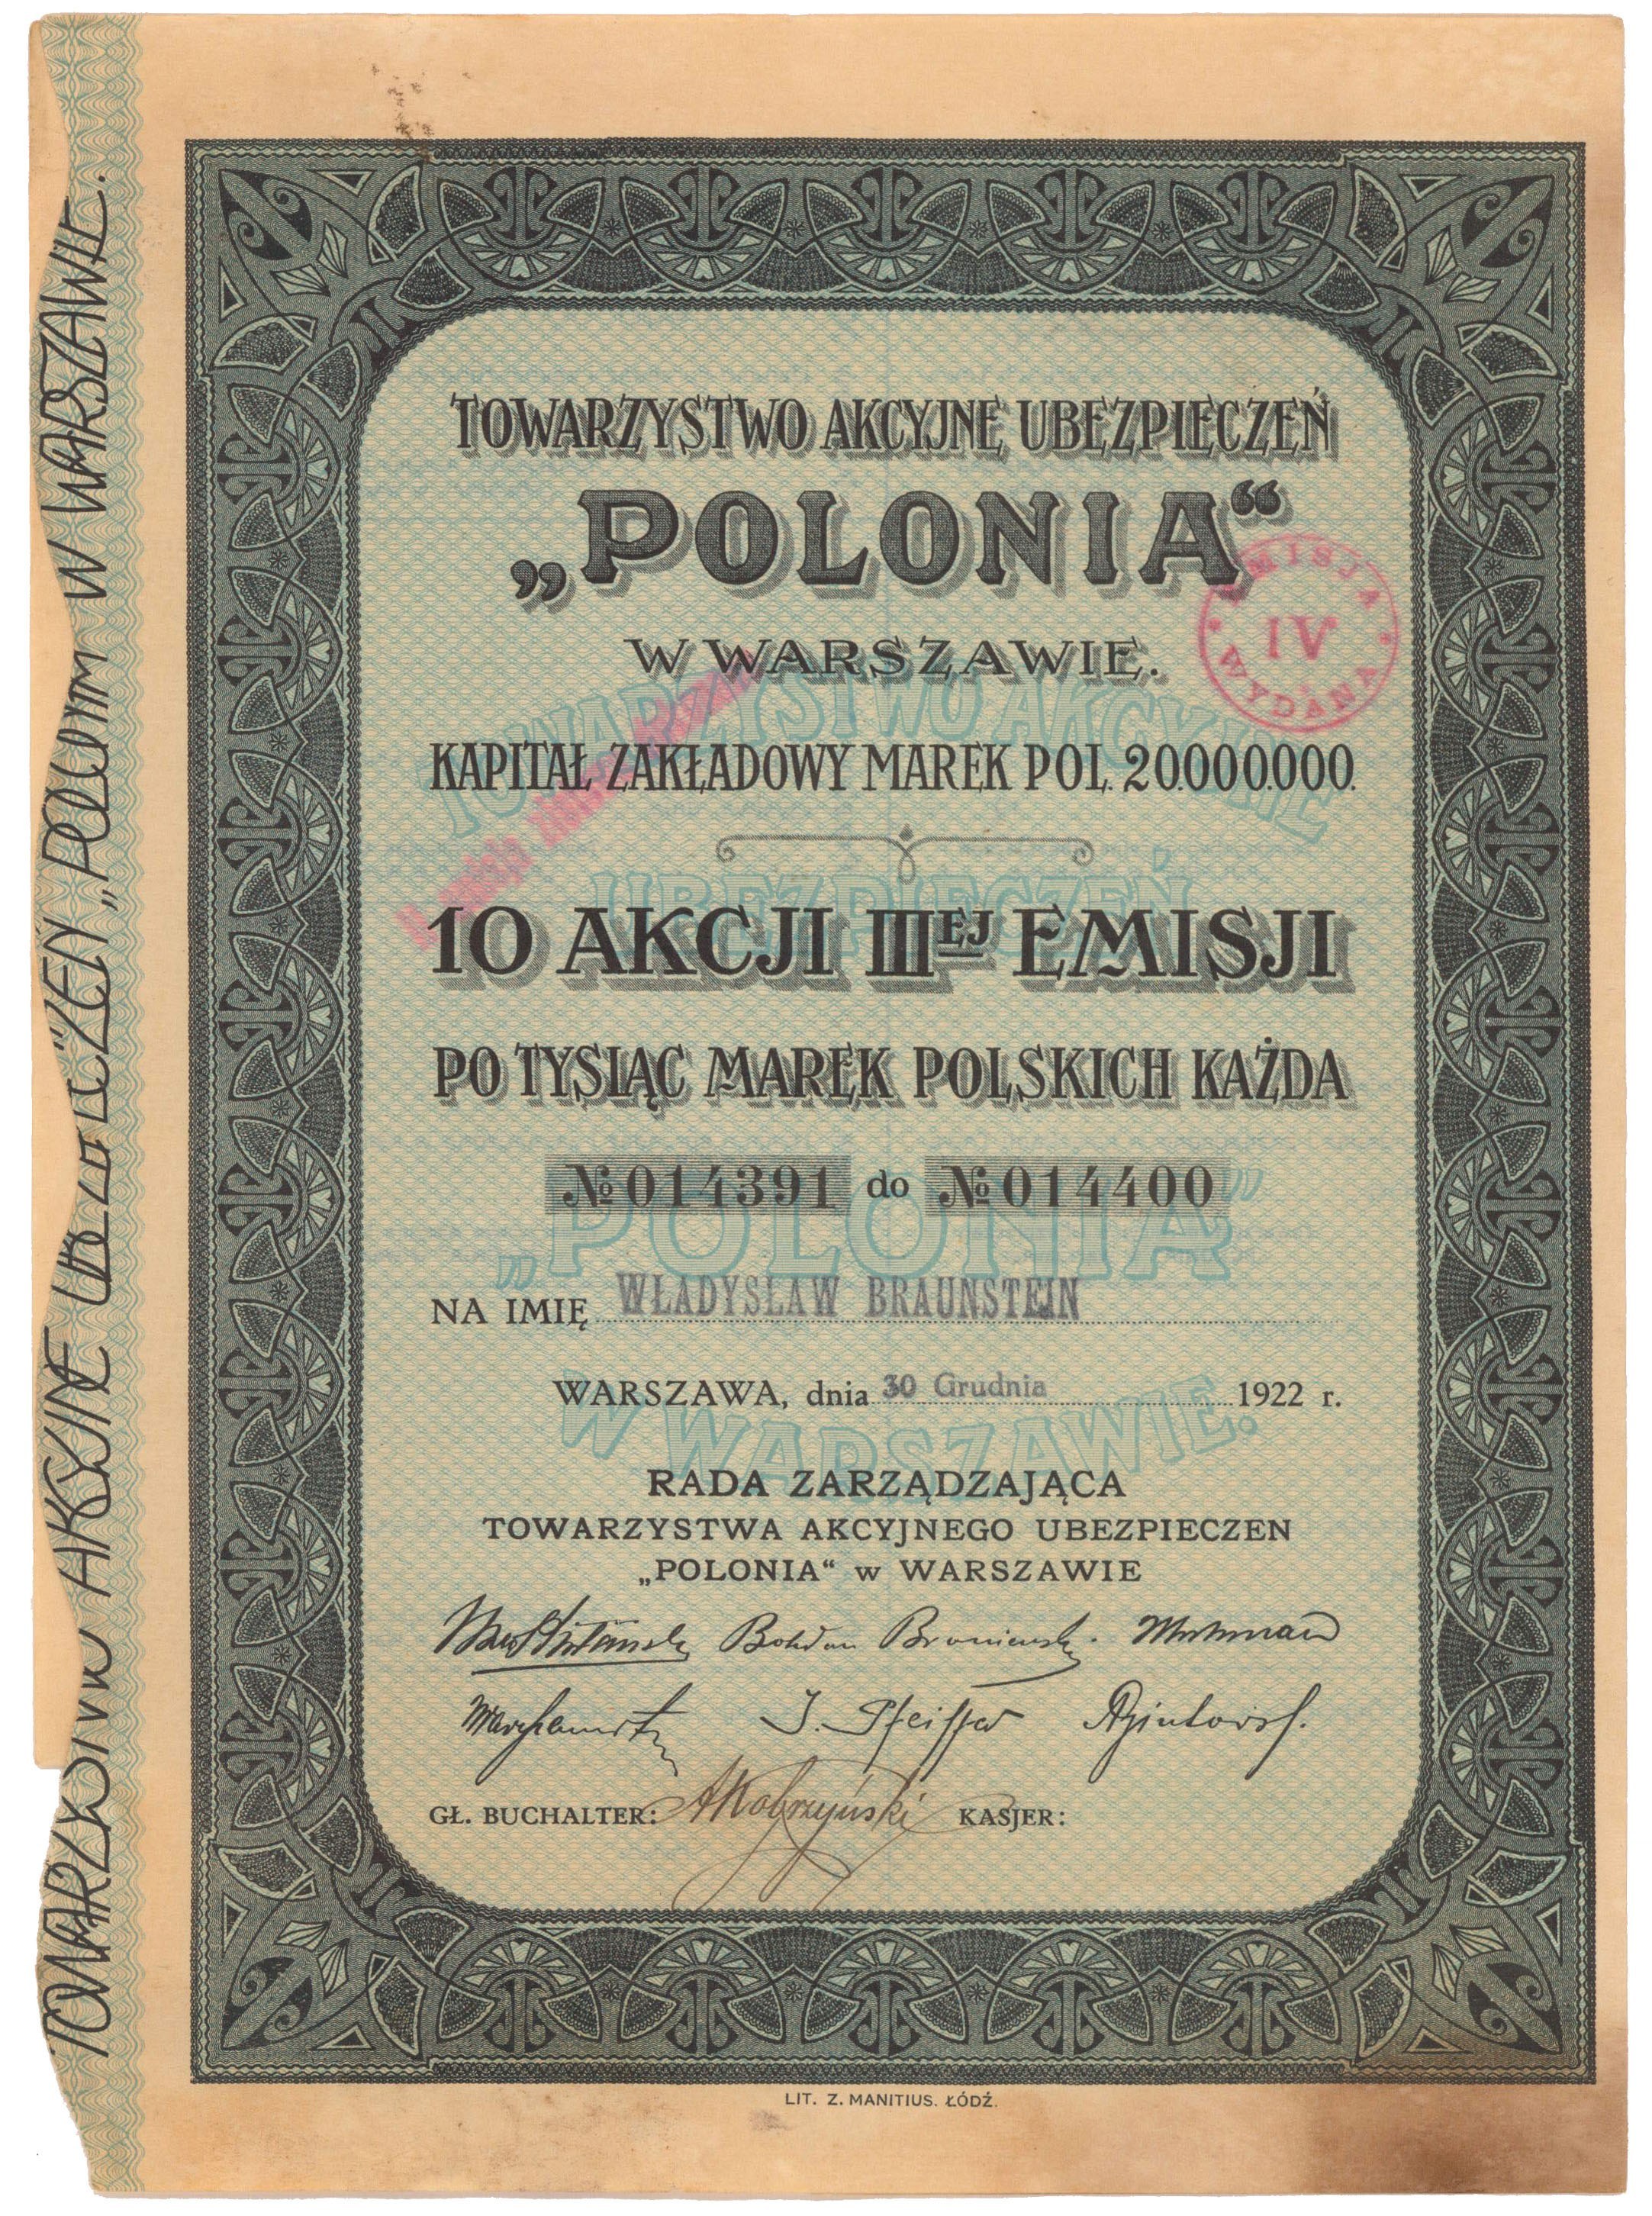 TOWARZYSTWO AKCYJNE UBEZPIECZEŃ
„POLONIA“
W WARSZAWIE.
EMISJA
IV
WYDANA
KAPITAŁ ZAKŁADOWY MAREK POL. 20.000.000.
10 AKCJI IIIEJ EMISJI
PO TYSIĄC MAREK POLSKICH KAŻDA
№ 014391 do № 014400
NA IMIĘ WŁADYSŁAW BRAUNSTEIN
WARSZAWA, dnia 30 Grudnia 1922 r.
RADA ZARZĄDZAJĄCA
TOWARZYSTWA AKCYJNEGO UBEZPIECZEN
„POLONIA“ w WARSZAWIE
Bohdan Broniewski.
J. Pfeiffer
GŁ. BUCHALTER: AKobrzyński KASJER:
LIT. Z. MANITIUS. ŁÓDŹ.
TOWARZYSTWO AKCYJNE UBEZPIECZEŃ
„POLONIA”
W WARSZAWIE.
TOWARZYSTWO AKCYJNE UBEZPIECZEŃ „POLONIA" W WARSZAWIE.